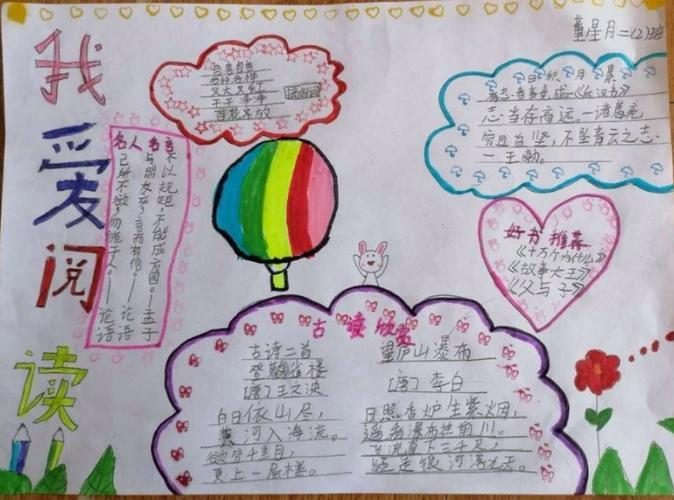 我爱阅读
董星月二(2)班
名人名言
不以规矩,不能成方圆。—孟子
与朋友交,言而有信。—论语
己所不欲,勿施于人。—论语
自言自语
又大又红
干干净净
百花齐放
日积月累
有志者事竟成—《后汉书》
志当存高远—诸葛亮
穷且益坚,不坠青云之志
—王勃。
好书推荐
《十万个为什么》
《故事大王》
《父与子》
古读欣赏
古诗二首
登鹳雀楼
[唐]王之涣
白日依山尽,
黄河入海流。
欲穷千里目,
更上一层楼。
望庐山瀑布
[唐]李白
日照香炉生紫烟,
遥看瀑布挂前川。
飞流直下三千尺,
疑是银河落九天。